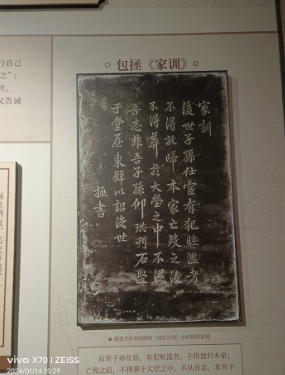 行自己
之”；
又告诫
包拯《家训》
家訓
後世子孫仕宦有犯賍濫者
不得放歸本家亡殁之後
不得葬於大塋之中不從
吾志非吾子孫仰珙刊石竪
于堂屋東壁以詔後世
拯書
后世子孙仕宦，有犯赃滥者，不得放归本家；
亡殁之后，不得葬于大茔之中。不从吾志，非吾子
vivo X70 | ZEISS
2024/01/14 15:29